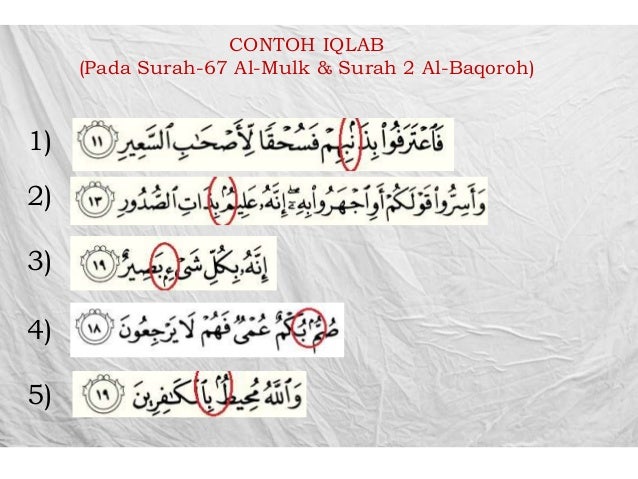 CONTOH IQLAB
(Pada Surah-67 Al-Mulk & Surah 2 Al-Baqoroh)
1) فَٱعۡتَرَفُواْ بِذَنۢبِهِمۡ فَسُحۡقٗا لِّأَصۡحَٰبِ ٱلسَّعِيرِ ١١
2) وَأَسِرُّواْ قَوۡلَكُمۡ أَوِ ٱجۡهَرُواْ بِهِۦٓۖ إِنَّهُۥ عَلِيمُۢ بِذَاتِ ٱلصُّدُورِ ١٣
3) إِنَّهُۥ بِكُلِّ شَيۡءِۭ بَصِيرٌ ١٩
4) صُمُّۢ بُكۡمٌ عُمۡيٞ فَهُمۡ لَا يَرۡجِعُونَ ١٨
5) وَٱللَّهُ مُحِيطُۢ بِٱلۡكَٰفِرِينَ ١٩